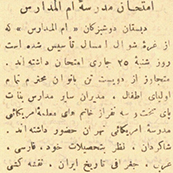 امتحان مدرسه ام المدارس
دبستان دوشیزگان « ام المدارس » که
از غرهٔ شوال امسال تأسیس شده است
روز شنبهٔ ۲۵ جاری امتحان داشته‌اند.
متجاوز از دویست تن بانوان محترم تمام
اولیای اطفال. مدیران سایر مدارس بنات
بای شخت سه نفر از خانم های معلمهٔ امریکائی
مدرسهٔ امریکائی تهران حضور داشته‌اند.
شاگردان. نظر بتحصیلات خود. فارسی.
عرب. جغرافی تاریخ ایران. نقشه کشی